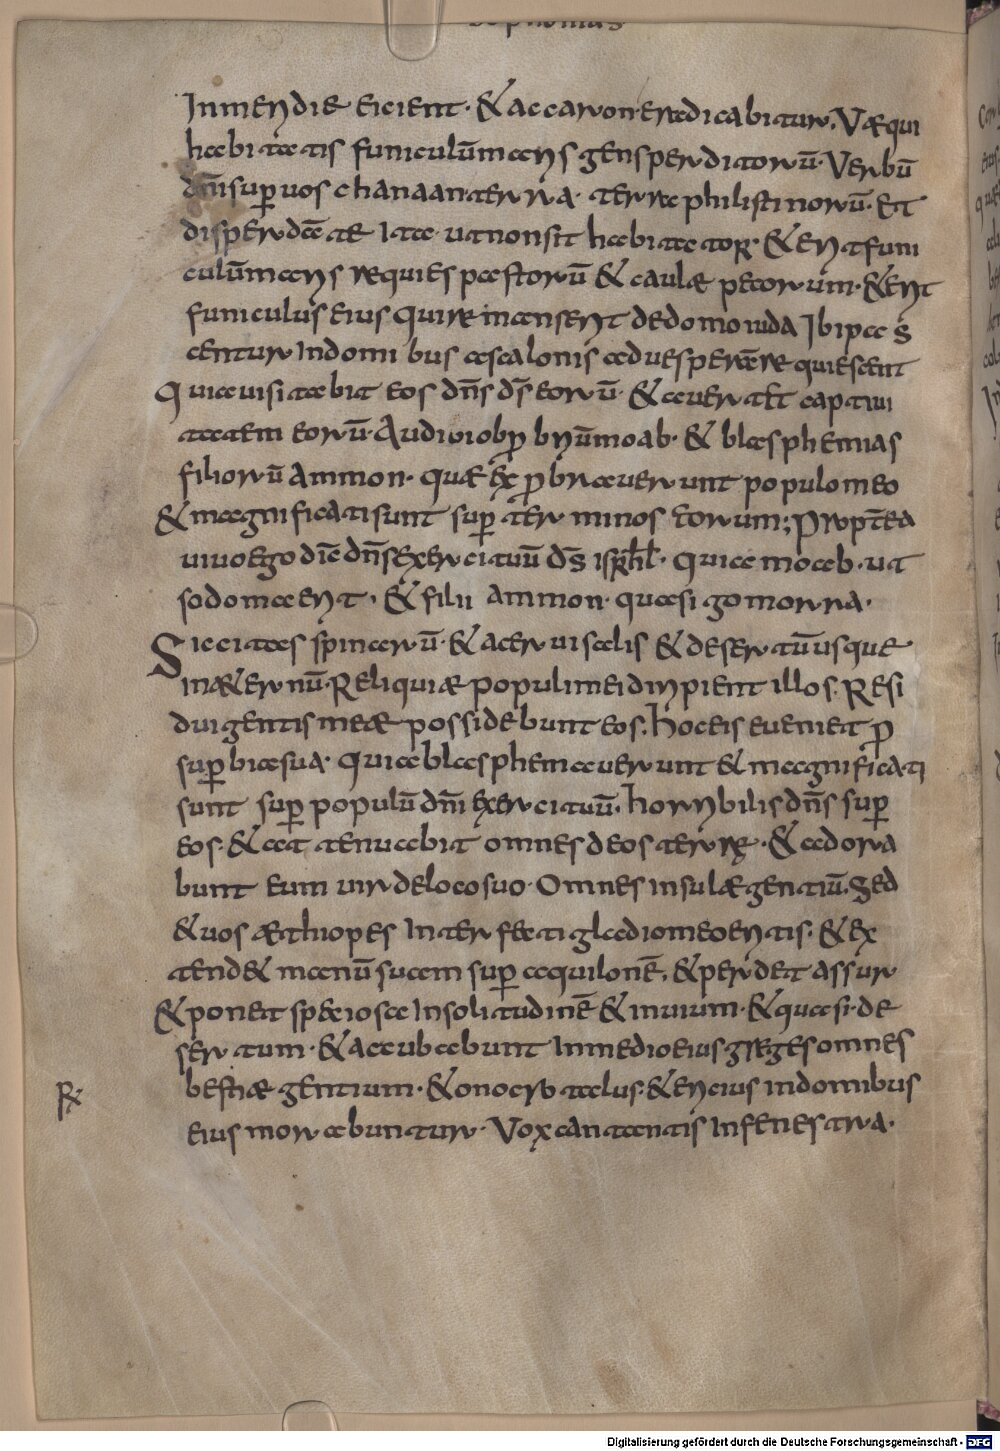 Sophonias
Inmeridie eicient· & accaron eradicabitur, Væ qui
habitatis funiculū maris gens perditorū· Verbū
dn̄i sup uos chanaan terra· terræ philistinorū· Et
disperdā te Ita ut non sit habitator· & erit funi
culū maris requies pastorū & caulæ pecorum· & erit
funiculus eius qui remanserit de domo iuda Ibi pas
centur In domibus ascalonis ad uesperā requiescent
Quia uisitabit eos dn̄s d̄s eorū· & auertet captiui
tatem eorū· Audiui obprobriū moab· & blasphemias
filiorū ammon· quæ exprobrauerunt populo meo
& magnificati sunt sup terminos eorum; Propterea
uiuo Ego dic̄ dn̄s exercituū d̄s isrl· Quia moab· ut
sodoma erit· & filii ammon· quasi gomorra·
Siccitas spinarū· & acerui salis & desertū usque
in æternū· Reliquiæ populi mei diripient illos· Resi
dui gentis meæ possidebunt eos· hoc eis eueniet p
supbia sua· Quia blasphemauerunt & magnificati
sunt sup populū dn̄i exercituū· horribilis dn̄s sup
eos· & attenuabit omnes deos terrę· & adora
bunt eum uir de loco suo· Omnes insulæ gentiū· Sed
& uos æthiopes Interfecti gladio meo eritis· & ex
tend& manū suam sup aquilonē· & perdet assur
& ponet speciosa In solitudinē & inuium· & quasi de
sertum· & accubabunt In medio eius greges omnes
bestiæ gentium· & onocrotalus· & ericius in domibus
eius morabuntur· Vox cantantis In fenestra·
Digitalisierung gefördert durch die Deutsche Forschungsgemeinschaft - DFG